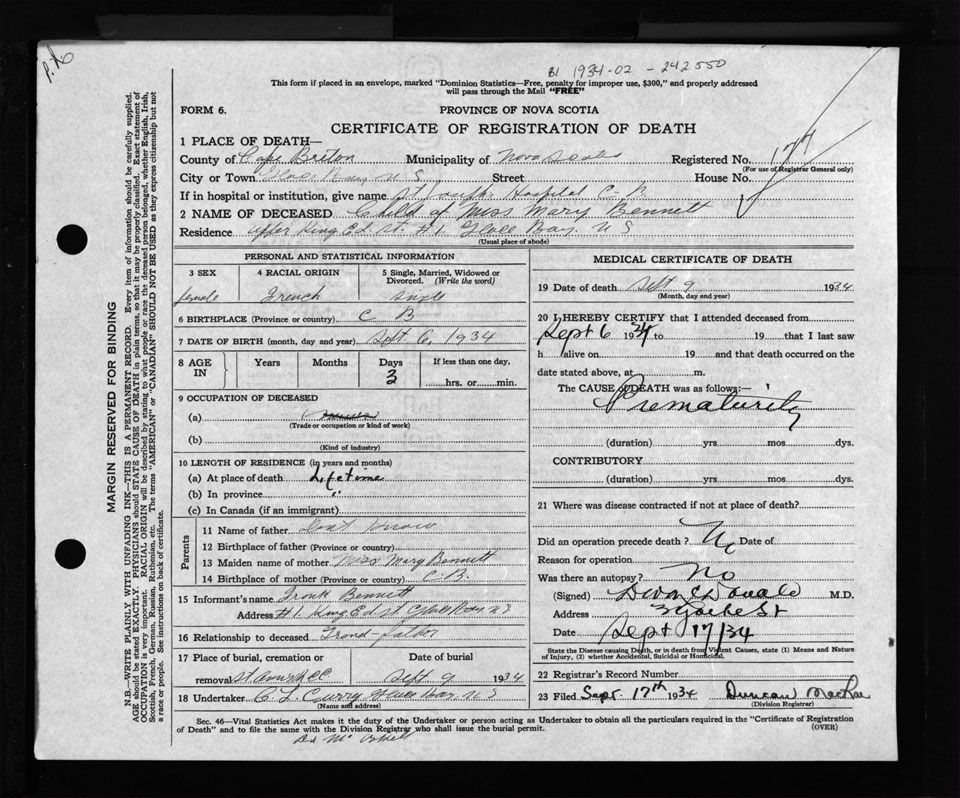 1934-02-242550
This form if placed in an envelope, marked "Dominion Statistics—Free, penalty for improper use, $300," and properly addressed
will pass through the Mail "FREE"
FORM 6.
PROVINCE OF NOVA SCOTIA
CERTIFICATE OF REGISTRATION OF DEATH
1 PLACE OF DEATH—
County of Cape Breton Municipality of Nova Scotia Registered No. 177
(For use of Registrar General only)
City or Town Glace Bay N S Street House No.
If in hospital or institution, give name St Joseph Hospital C-B
2 NAME OF DECEASED Child of Miss Mary Bennett
Residence upper King Ed St. #1. Glace Bay. N S
(Usual place of abode)
PERSONAL AND STATISTICAL INFORMATION
3 SEX 4 RACIAL ORIGIN 5 Single, Married, Widowed or Divorced. (Write the word)
female French Single
6 BIRTHPLACE (Province or country) C B
7 DATE OF BIRTH (month, day and year) Sept 6, 1934
8 AGE IN Years Months Days If less than one day,
3 hrs. or min.
9 OCCUPATION OF DECEASED
(a)
(Trade or occupation or kind of work)
(b)
(Kind of industry)
10 LENGTH OF RESIDENCE (in years and months)
(a) At place of death Lifetime
(b) In province "
(c) In Canada (if an immigrant)
Parents
11 Name of father Dont Know
12 Birthplace of father (Province or country)
13 Maiden name of mother Miss Mary Bennett
14 Birthplace of mother (Province or country) C-B.
15 Informant's name Frank Bennett
Address #1 King Ed St Glace Bay N S
16 Relationship to deceased Grand-father
17 Place of burial, cremation or removal Date of burial
Sept 9 1934
18 Undertaker C. L. Curry Glace Bay. N S
(Name and address)
MEDICAL CERTIFICATE OF DEATH
19 Date of death Sept 9 1934
(Month, day and year)
20 I HEREBY CERTIFY that I attended deceased from
Sept 6 1934 to 19 that I last saw
h alive on 19 and that death occurred on the
date stated above, at m.
The CAUSE of DEATH was as follows:—
Prematurity
(duration) yrs. mos. dys.
CONTRIBUTORY
(duration) yrs. mos. dys.
21 Where was disease contracted if not at place of death?
Did an operation precede death? Date of
Reason for operation
Was there an autopsy? No
(Signed) M.D.
Address
Date Sept 17/34
State the Disease causing Death, or in death from Violent Causes, state (1) Means and Nature
of Injury, (2) whether Accidental, Suicidal or Homicidal.
22 Registrar's Record Number
23 Filed Sept. 17th 1934 Duncan MacRae
(Division Registrar)
Sec. 46—Vital Statistics Act makes it the duty of the Undertaker or person acting as Undertaker to obtain all the particulars required in the "Certificate of Registration
of Death" and to file the same with the Division Registrar who shall issue the burial permit.
(OVER)
MARGIN RESERVED FOR BINDING
N.B.—WRITE PLAINLY WITH UNFADING INK—THIS IS A PERMANENT RECORD. Every item of information should be carefully supplied.
AGE should be stated EXACTLY. PHYSICIANS should STATE CAUSE OF DEATH in plain terms, so that it may be properly classified. Exact statement of
OCCUPATION is very important. RACIAL ORIGIN will be described by stating to what people or race the deceased person belonged, whether English, Irish,
Scottish, French, German, Russian, Ruthenian, etc. The terms "AMERICAN" or "CANADIAN" SHOULD NOT BE USED as they express citizenship but not
a race or people. See instructions on back of certificate.